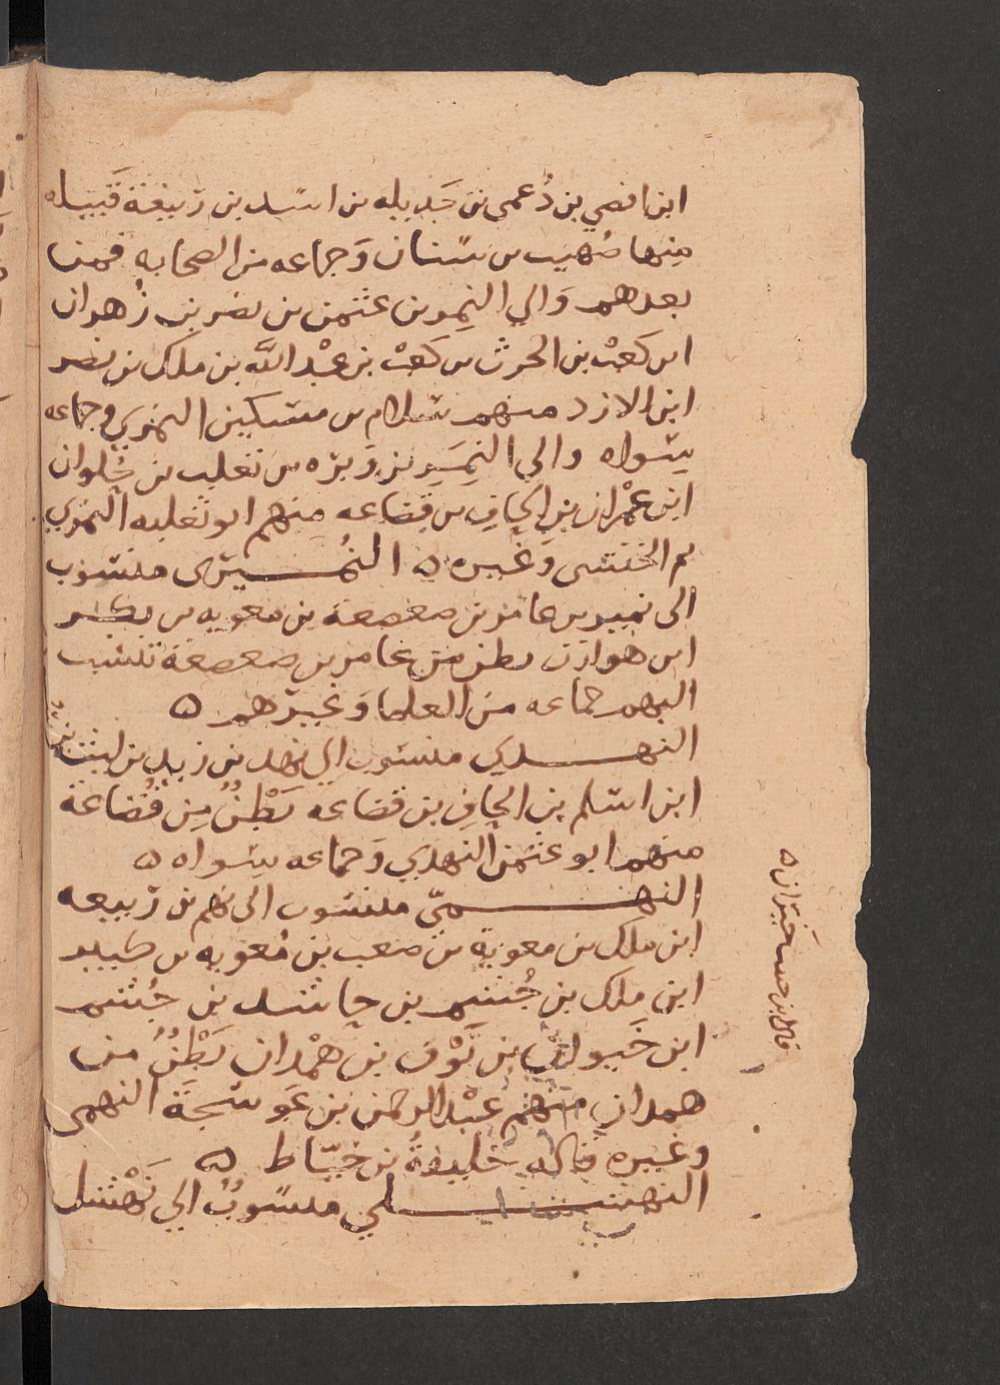 ابن افصي بن دُعمى بن جَديله بن اسد بن ربيعَة قَبيله
مِنها صُهيب بن سنان وَجماعه من الصحابه فمن
بعدهم وَالي النِمر بن عثمن بن نصر بن زُهران
ابن كعبْ بن الحرث بن كعبْ بن عبْد الله بن ملك بن نصر
ابن الازد منهم سلام بن مسكين النمري وجماعه
سواه والي النِمَير بن وَبره بن تغلب بن حُلوان
ابن عمْران بن الحافِ بن قضاعه مِنهم ابو ثعلبه النمري
ثم الخشنى وَغيره ه النُميرى منسُوب
الى نمير بن عامر بن صعصعة بن معويه بن بكر
ابن هوازن بطن من عامر بن صعصعة تنسب
اليهم جماعه من العلما وَغيرهم ه
النهدي منسوب الي نهد بن زيد بن ليث
ابن اسلم بن الحافِ بن قضاعه بَطْنٌ مِن قُضَاعَة
منهم ابو عثمن النهدي وَجماعه سواه ه
النهمىّ منسوب الى نهم بن ربيعه
ابن ملك بن معوية بن صعب بن مُعويه بن كبير
ابن ملك بن جُشم بن حاشد بن جُشم
ابن خَيوان بن نَوْف بن همْدان بَطْنٌ من
همدان منهم عَبْد الرحمن بن عَوسَجَة النهمى
وغيره قاله خليفةُ بن خيّاط ه
النهشلي منسوبٌ الي نَهْشل